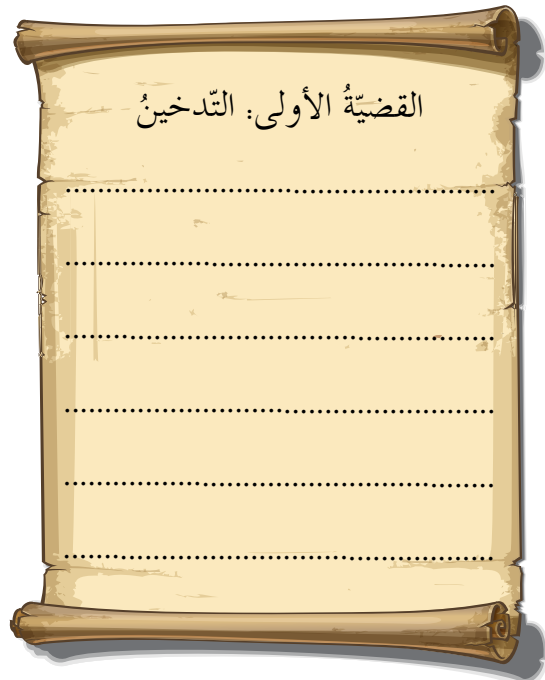 القضيّةُ الأولى: التّدخينُ
........................................................
........................................................
........................................................
........................................................
........................................................
........................................................